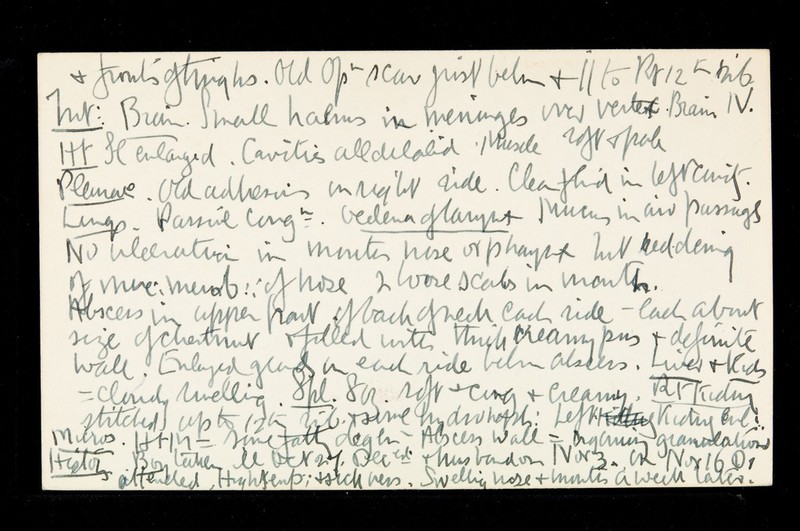 + fronts of thighs. Old Opn scar just below + || to Rt 12th rib
Int: Brain. Small haems in meninges over vertex. Brain IV.
Ht Sl enlarged. Cavities all dilated. Muscle soft + pale
Pleurae. Old adhesions in right side. Clear fluid in left cavity.
Lungs. Passive congn. Oedema of larynx Mucus in air passages
No ulceration in mouth nose or pharynx but reddening
of muc: memb: of nose 2 loose scabs in mouth.
Abscess in upper part of back of neck each side - each about
size of chestnut + filled with thick creamy pus + definite
wall. Enlarged glands on each side below abscess. Liver + Kids
= cloudy swelling. Spl. 8 oz. soft + cong + creamy. Rt Kidney
stitched up to 12th rib. + some hydroneph: Left Kidney
Micros. Ht M = some fatty degen - Abscess wall = organising granulations
History Boy taken ill Oct 27. + husband on Nov 3. on Nov 16
attended, High temp: + sickness. Swelling nose + mouth a week later.